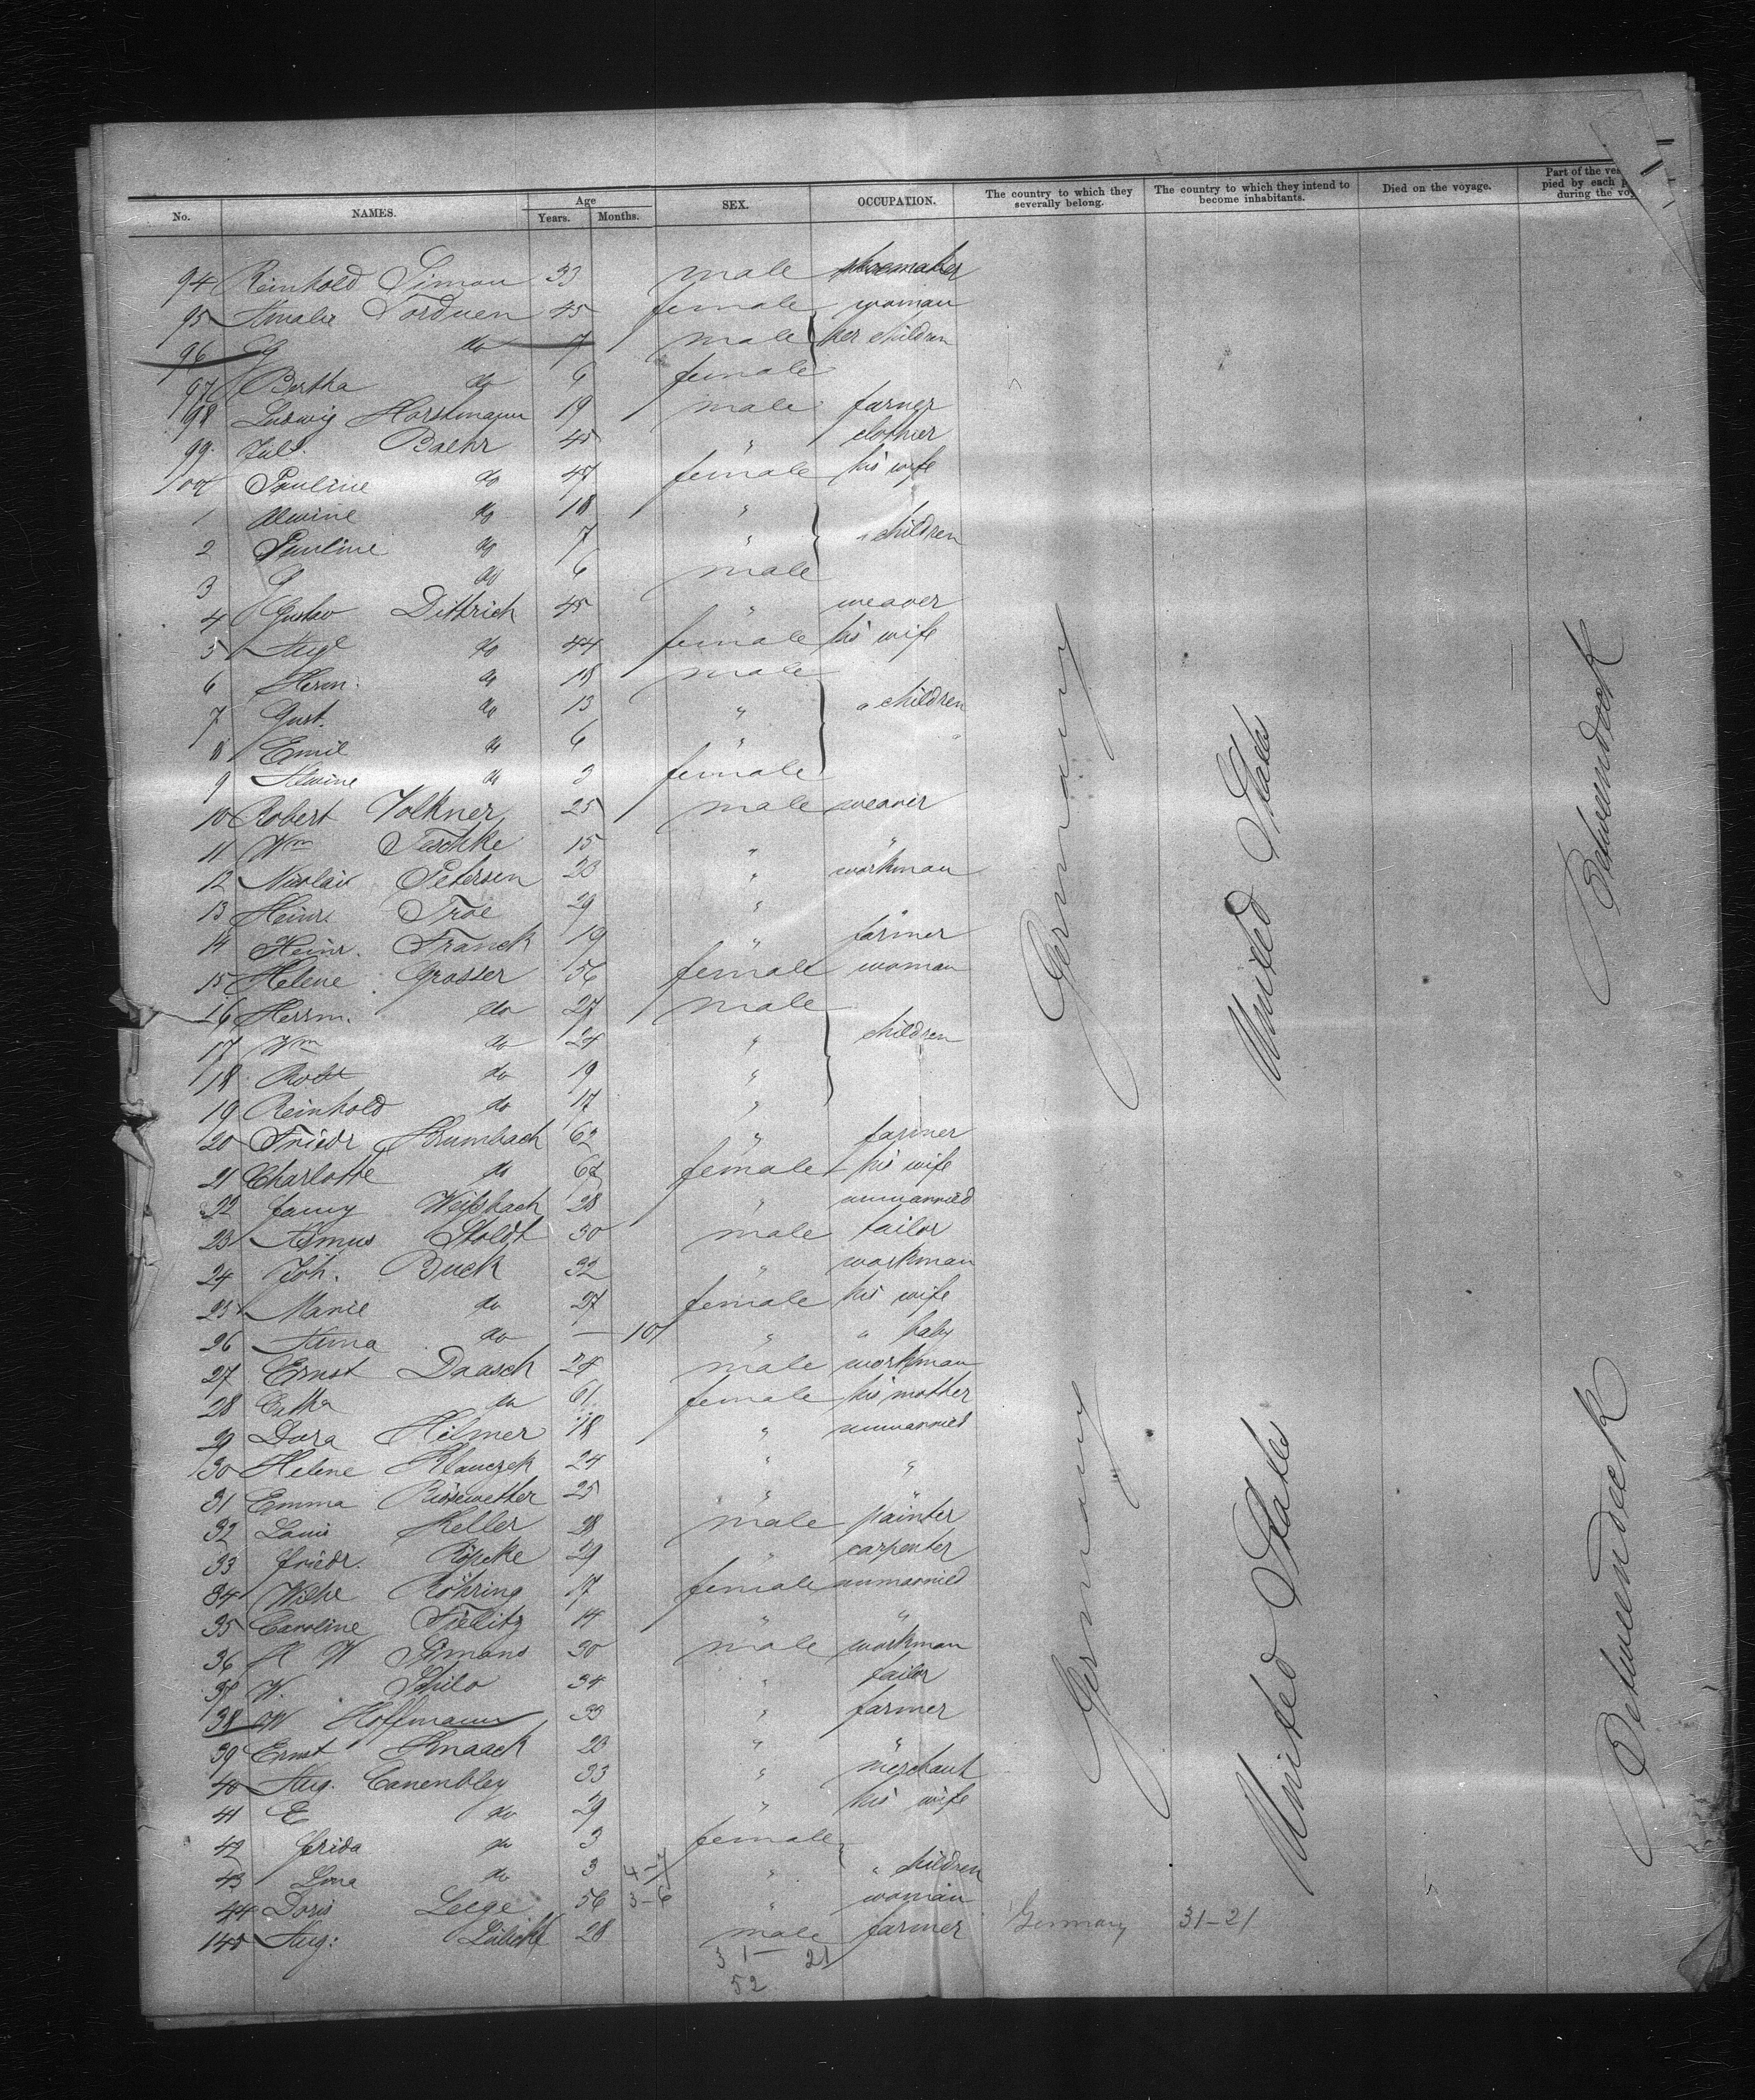 No. NAMES. Age Years. Months. SEX. OCCUPATION. The country to which they severally belong. The country to which they intend to become inhabitants. Died on the voyage. Part of the ves pied by each p during the voy
94 Reinhold Simon 33 male shoemaker
95 Amalie 45 female woman
96 G do 7 male her children
97 Bertha do 6 female
98 Ludwig Horstmann 19 male farmer
99 Jul. Baehr 45 "
100 Pauline do 47 female his wife
1 Alwine do 18 "
2 Pauline do 7 " " children
3 G do 6 male
4 Gustav Dittrich 45 " weaver
5 Aug do 44 female his wife
6 Herm. do 18 male
7 Gust. do 13 " " children
8 Emil do 6 "
9 Alwine do 3 female
10 Robert Volkner 25 male weaver
11 Wm Teschke 15 " "
12 Nicolai Petersen 23 " workman
13 Heinr Troe 29 " "
14 Heinr. Franck 19 " farmer
15 Helene Grosser 56 female woman
16 Herrm. do 27 male
17 Wm do 24 " children
18 Robt do 19 "
19 Reinhold do 17 "
20 Friedr Krumbach 62 " farmer
21 Charlotte do 67 female his wife
22 Fanny Weißbach 28 " unmarried
23 Asmus Stoldt 30 male tailor
24 Joh. Buck 32 " workman
25 Marie do 27 female his wife
26 Anna do — 10 " " baby
27 Ernst Daasch 24 male workman
28 do 61 female his mother
29 Dora Hilmer 18 " unmarried
30 Helene Klauczek 24 " "
31 Emma 25 " "
32 Louis Keller 28 male painter
33 Friedr. Röpcke 29 " carpenter
34 Wilhe Röhring 17 female unmarried
35 Caroline Fielitz 14 " "
36 H W Simons 30 male workman
37 W. 34 " tailor
38 W Hoffmann 33 " farmer
39 Ernst Knaack 23 " "
40 Aug. Canenbley 33 " merchant
41 E do 29 " his wife
42 Frida do 3 female
43 do 3 4-7 " " children
44 Doris Leege 56 3-6 " woman
145 Aug: 28 male farmer Germany 31-21
31 — 21
52
Germany
United States
Betweendeck
Germany
United States
Betweendeck